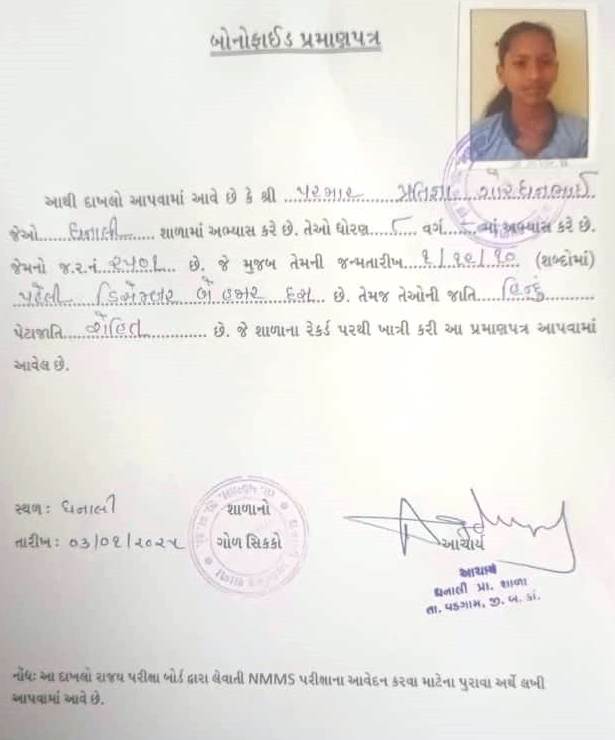 બોનોફાઈડ પ્રમાણપત્ર
આથી દાખલો આપવામાં આવે છે કે શ્રી ....પરમાર.......પ્રતિજ્ઞા....ગોરધનભાઈ
જેઓ.....ધનાલી........ શાળામાં અભ્યાસ કરે છે. તેઓ ધોરણ.....૮.... વર્ગ.......માં અભ્યાસ કરે છે.
જેમનો જ.ર.નં..૨૫૦૧.... છે. જે મુજબ તેમની જન્મતારીખ...૧/૧૨/૧૦... (શબ્દોમાં)
..પહેલી....ડિસેમ્બર....બે હજાર દસ.... છે. તેમજ તેઓની જાતિ.....હિન્દુ
પેટાજાતિ...રોહિત............. છે. જે શાળાના રેકર્ડ પરથી ખાત્રી કરી આ પ્રમાણપત્ર આપવામાં
આવેલ છે.
સ્થળ: ધનાલી
તારીખ: ૦૩/૦૧/૨૦૨૫
શાળાનો
ગોળ સિક્કો
આચાર્ય
આચાર્ય
ધનાલી પ્રા. શાળા
તા. વડગામ, જી. બ. કાં.
નોંધ: આ દાખલો રાજ્ય પરીક્ષા બોર્ડ દ્વારા લેવાતી NMMS પરીક્ષાના આવેદન કરવા માટેના પુરાવા અર્થે લખી
આપવામાં આવે છે.